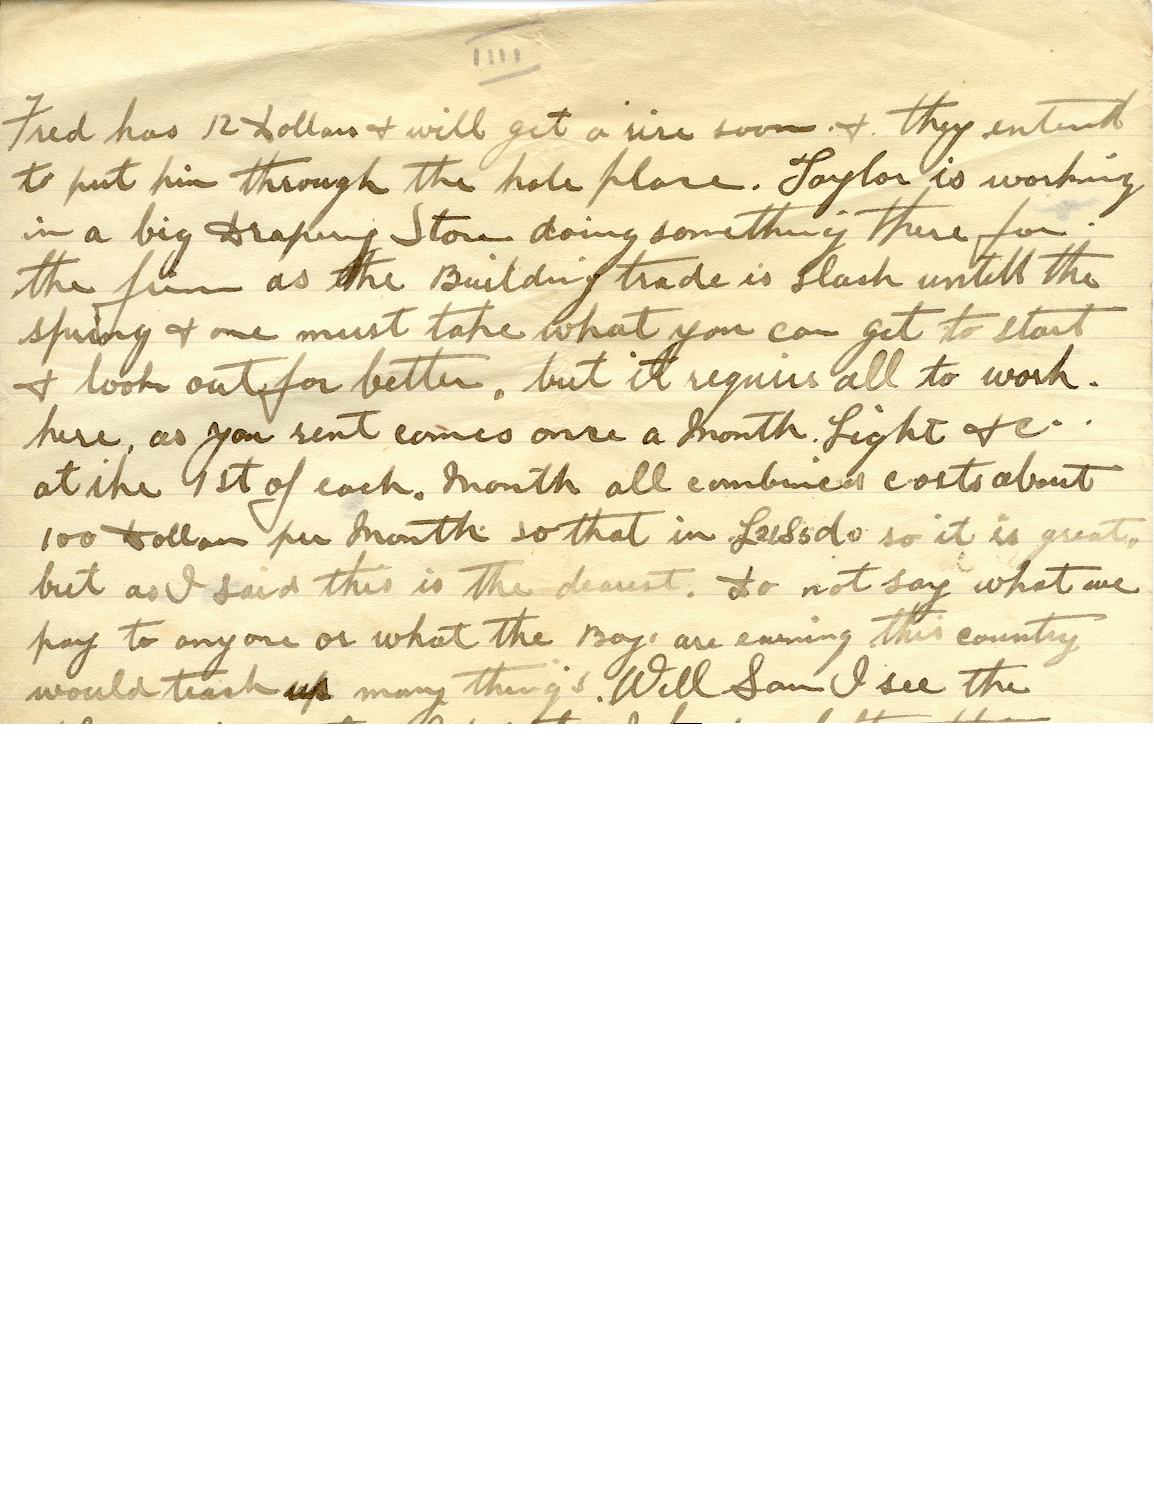 IIII
Fred has 12 Dollars & will get a rise soon. &. they entend
to put him through the hole place. Taylor is working
in a big Drapery Store doing something there for
the firm as the Building trade is slack untill the
spring & one must take what you can get to start
& look out for better, but it requires all to work.
here, as you rent comes once a Month. Light &c.
at the 1st of each. Month all combined costs about
100 Dollars per Month so that in so it is great.
but as I said this is the dearest. Do not say what we
pay to anyone or what the Boys are earning this country
would teach us many things. Well Sam I see the